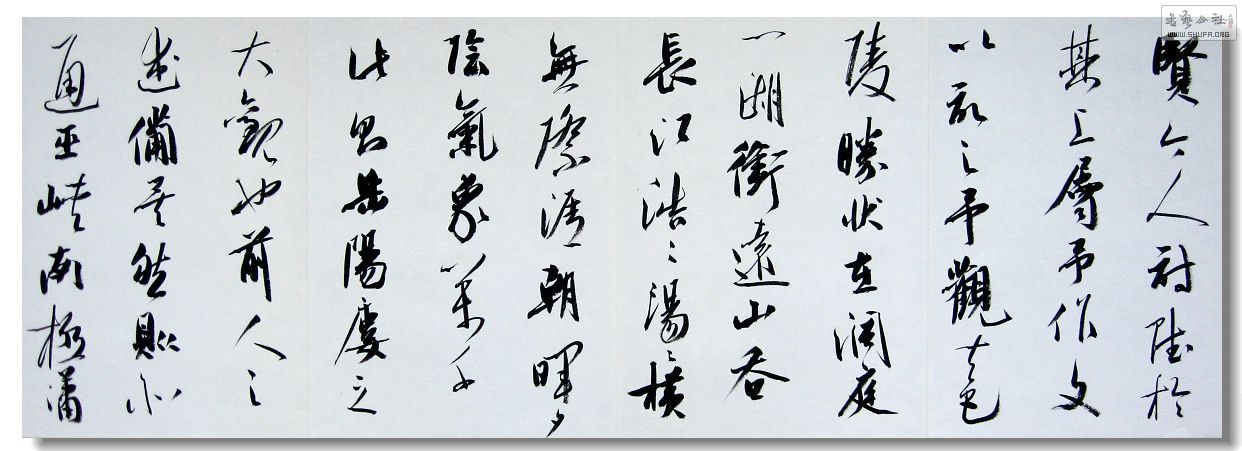 賢今人詩賦於
其上屬予作文
以記之予觀夫巴
陵勝狀在洞庭
一湖銜遠山吞
長江浩〻湯〻橫
無際涯朝暉夕
陰氣象萬千
此則岳陽樓之
大觀也前人之
述備矣然則北
通巫峽南極瀟
書藝公社
WWW.SHUFA.ORG